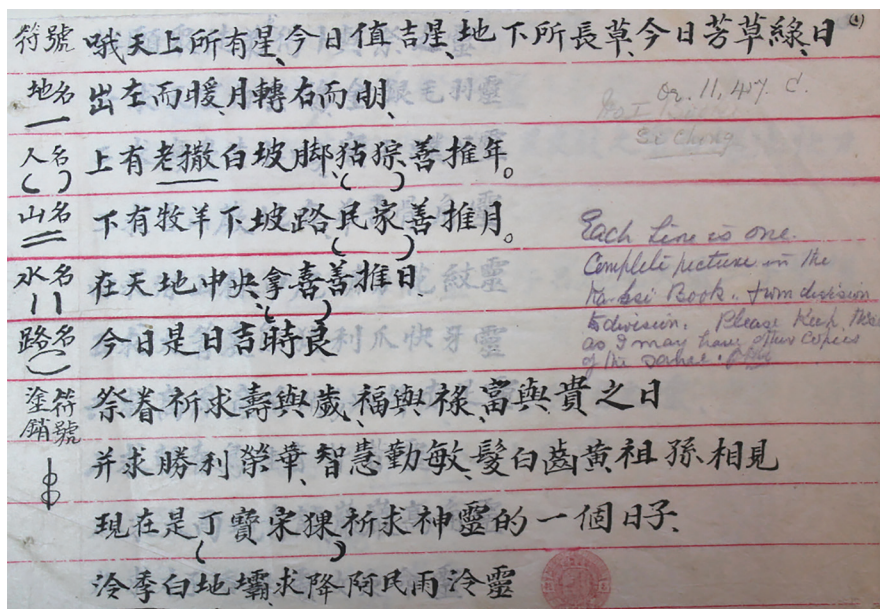 符號 哦天上所有星、今日值吉星、地下所長草、今日芳草綠、日
地名 出左而暖、月轉右而明、
人名 上有老撒白坡脚、猪猔善推年。
山名 下有牧羊下坡路、民家善推月。
水名 在天地中央、拿喜善推日、
路名 今日是日吉時良
塗銷符號 祭眷祈求壽與歲、福與祿、富與貴之日
并求勝利榮華、智慧勤敏、髮白齒黄、祖孫相見
現在是丁寶宋猓祈求神靈的一個日子、
泠季白地壩、求降阿民雨泠靈
Or. 11,417. C.
Si Chong
Each line is one
Complete picture in the
Na-hsi Book. from division
to division. Please Keep this
as I may have other copies
of the same.